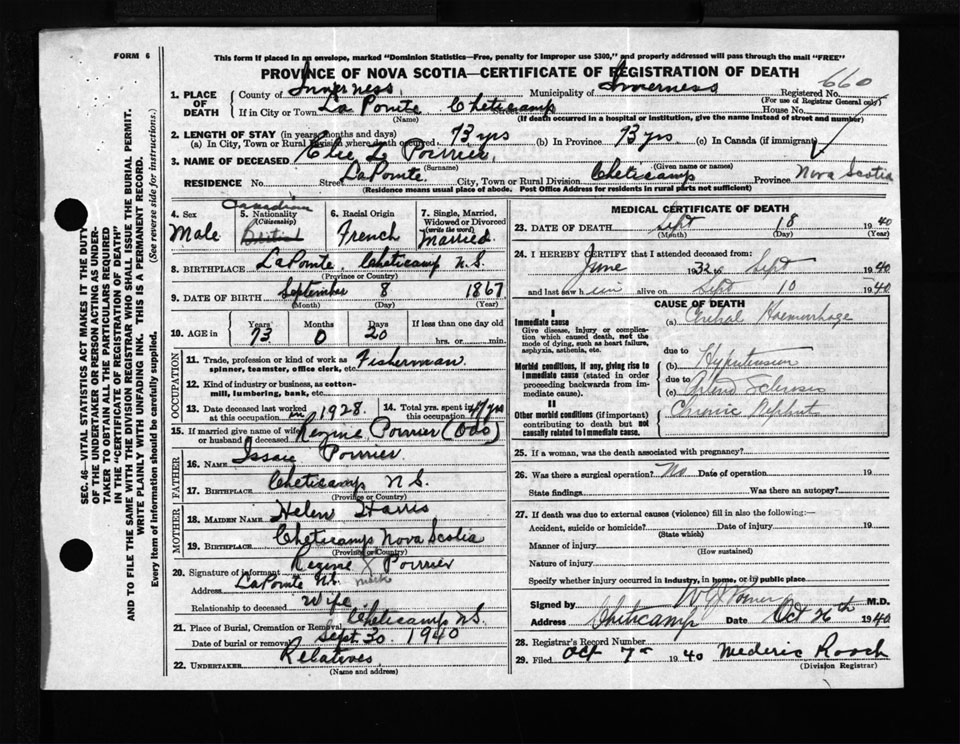 FORM 6
This form if placed in an envelope, marked "Dominion Statistics—Free, penalty for improper use $300," and properly addressed will pass through the mail "FREE"
PROVINCE OF NOVA SCOTIA—CERTIFICATE OF REGISTRATION OF DEATH
660
1. PLACE OF DEATH
County of Inverness
Municipality of Inverness
Registered No.
(For use of Registrar General only)
If in City or Town La Pointe Cheticamp Street House No.
(Name) (If death occurred in a hospital or institution, give the name instead of street and number)
2. LENGTH OF STAY (in years, months and days)
(a) In City, Town or Rural Division where death occurred 73 yrs (b) In Province 73 yrs (c) In Canada (if immigrant)
3. NAME OF DECEASED Elie L Poirrier
(Surname) (Given name or names)
RESIDENCE No. Street LaPointe City, Town or Rural Division Cheticamp Province Nova Scotia
(Residence means usual place of abode. Post Office Address for residents in rural parts not sufficient)
4. Sex Male
5. Nationality (Citizenship) Canadian British
6. Racial Origin French
7. Single, Married, Widowed or Divorced (write the word) Married
8. BIRTHPLACE LaPointe, Cheticamp N.S.
(Province or Country)
9. DATE OF BIRTH September 8 1867
(Month) (Day) (Year)
10. AGE in Years 73 Months 0 Days 20 If less than one day old hrs. or min.
OCCUPATION
11. Trade, profession or kind of work as spinner, teamster, office clerk, etc. Fisherman
12. Kind of industry or business, as cotton-mill, lumbering, bank, etc.
13. Date deceased last worked at this occupation in 1928. 14. Total yrs. spent in this occupation 47 yrs
15. If married give name of wife or husband of deceased Regine Poirrier
FATHER
16. NAME Issaie Poirrier
17. BIRTHPLACE Cheticamp N.S.
(Province or Country)
MOTHER
18. MAIDEN NAME Helen Harris
19. BIRTHPLACE Cheticamp Nova Scotia
(Province or Country)
20. Signature of informant Regine X Poirrier
mark
Address LaPointe N.S.
Relationship to deceased Wife
21. Place of Burial, Cremation or Removal Cheticamp N.S.
Date of burial or removal Sept. 30. 1940
22. UNDERTAKER Relatives
(Name and address)
MEDICAL CERTIFICATE OF DEATH
23. DATE OF DEATH Sept 18 1940
(Month) (Day) (Year)
24. I HEREBY CERTIFY that I attended deceased from:
June 1932 to Sept 1940
and last saw him alive on Sept 10 1940
CAUSE OF DEATH
I
Immediate cause
Give disease, injury or complication which caused death, not the mode of dying, such as heart failure, asphyxia, asthenia, etc.
(a) Cerebral Haemorrhage
due to
Morbid conditions, if any, giving rise to immediate cause (stated in order proceeding backwards from immediate cause).
(b) Hypertension
due to
(c) Arterio Sclerosis
II
Other morbid conditions (if important) contributing to death but not causally related to immediate cause.
Chronic Nephrit
25. If a woman, was the death associated with pregnancy?
26. Was there a surgical operation? No Date of operation 19
State findings Was there an autopsy?
27. If death was due to external causes (violence) fill in also the following:—
Accident, suicide or homicide? Date of injury 19
(State which)
Manner of injury
(How sustained)
Nature of injury
Specify whether injury occurred in industry, in home, or in public place
Signed by M.D.
Address Cheticamp Date Oct 26th 1940
28. Registrar's Record Number
29. Filed Oct 7 1940 Mederic Roach
(Division Registrar)
SEC. 46—VITAL STATISTICS ACT MAKES IT THE DUTY
OF THE UNDERTAKER OR PERSON ACTING AS UNDER-
TAKER TO OBTAIN ALL THE PARTICULARS REQUIRED
IN THE "CERTIFICATE OF REGISTRATION OF DEATH"
AND TO FILE THE SAME WITH THE DIVISION REGISTRAR WHO SHALL ISSUE THE BURIAL PERMIT.
WRITE PLAINLY WITH UNFADING INK. THIS IS A PERMANENT RECORD.
Every item of information should be carefully supplied. (See reverse side for instructions.)